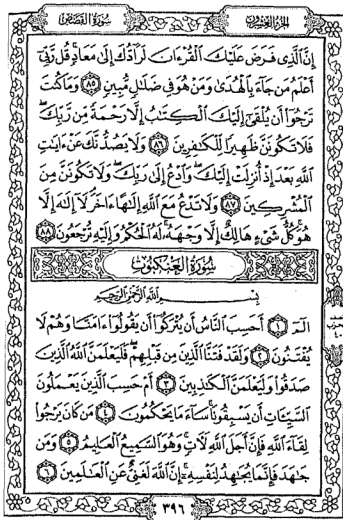 الجزء العشرون سورة القصص
إِنَّ الَّذِى فَرَضَ عَلَيْكَ الْقُرْءَانَ لَرَآدُّكَ إِلَىٰ مَعَادٍ قُل رَّبِّىٓ
أَعْلَمُ مَن جَآءَ بِالْهُدَىٰ وَمَنْ هُوَ فِى ضَلَٰلٍ مُّبِينٍ ٨٥ وَمَا كُنتَ
تَرْجُوٓا۟ أَن يُلْقَىٰٓ إِلَيْكَ الْكِتَٰبُ إِلَّا رَحْمَةً مِّن رَّبِّكَ
فَلَا تَكُونَنَّ ظَهِيرًا لِّلْكَٰفِرِينَ ٨٦ وَلَا يَصُدُّنَّكَ عَنْ ءَايَٰتِ
اللَّهِ بَعْدَ إِذْ أُنزِلَتْ إِلَيْكَ وَادْعُ إِلَىٰ رَبِّكَ وَلَا تَكُونَنَّ مِنَ
الْمُشْرِكِينَ ٨٧ وَلَا تَدْعُ مَعَ اللَّهِ إِلَٰهًا ءَاخَرَ لَآ إِلَٰهَ إِلَّا
هُوَ كُلُّ شَىْءٍ هَالِكٌ إِلَّا وَجْهَهُۥ لَهُ الْحُكْمُ وَإِلَيْهِ تُرْجَعُونَ ٨٨
سورة العنكبوت
بِسْمِ اللَّهِ الرَّحْمَٰنِ الرَّحِيمِ
الٓمٓ ١ أَحَسِبَ النَّاسُ أَن يُتْرَكُوٓا۟ أَن يَقُولُوٓا۟ ءَامَنَّا وَهُمْ لَا
يُفْتَنُونَ ٢ وَلَقَدْ فَتَنَّا الَّذِينَ مِن قَبْلِهِمْ فَلَيَعْلَمَنَّ اللَّهُ الَّذِينَ
صَدَقُوا۟ وَلَيَعْلَمَنَّ الْكَٰذِبِينَ ٣ أَمْ حَسِبَ الَّذِينَ يَعْمَلُونَ
السَّيِّـَٔاتِ أَن يَسْبِقُونَا سَآءَ مَا يَحْكُمُونَ ٤ مَن كَانَ يَرْجُوا۟
لِقَآءَ اللَّهِ فَإِنَّ أَجَلَ اللَّهِ لَـَٔاتٍ وَهُوَ السَّمِيعُ الْعَلِيمُ ٥ وَمَن
جَٰهَدَ فَإِنَّمَا يُجَٰهِدُ لِنَفْسِهِۦٓ إِنَّ اللَّهَ لَغَنِىٌّ عَنِ الْعَٰلَمِينَ ٦
٣٩٦